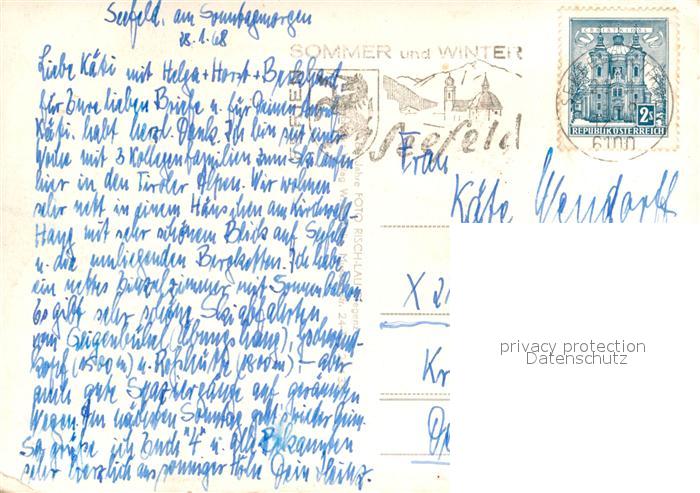 Seefeld, am Sonntagmorgen
28.1.68
Liebe Käti mit Helga + Horst + Burkhart
für Eure lieben Briefe u. für Deinen
Käti. habt herzl. Dank. Ich bin seit einer
Woche mit 3 Kollegenfamilien zum Skilaufen
hier in den Tiroler Alpen. Wir wohnen
sehr nett in einem Häuschen am Kirchwald-
Hang mit sehr schönem Blick auf Seefeld
u. die umliegenden Bergketten. Ich habe
ein nettes Einzelzimmer mit Sonnenbalkon.
Es gibt sehr schöne Skiabfahrten
vom Geigenbühel (Übungshang), Gschwandt-
kopf (1500 m) u. Roßhütte (1800 m) - aber
auch gute Spaziergänge auf geräumten
Wegen. Am nächsten Sonntag geht's wieder heim.
So grüße ich Euch "4" u. alle Bekannten
sehr herzlich aus sonniger Höhe Dein Heinz.
SOMMER und WINTER
Seefeld
6100
CHRISTKINDL
2 S
REPUBLIK ÖSTERREICH
FOTO RISCH-LAU
Frau
Käte Wendorff
X 21
Kr
privacy protection
Datenschutz